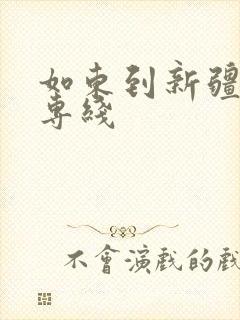 如东到新疆
專綫
不會演戲的戲